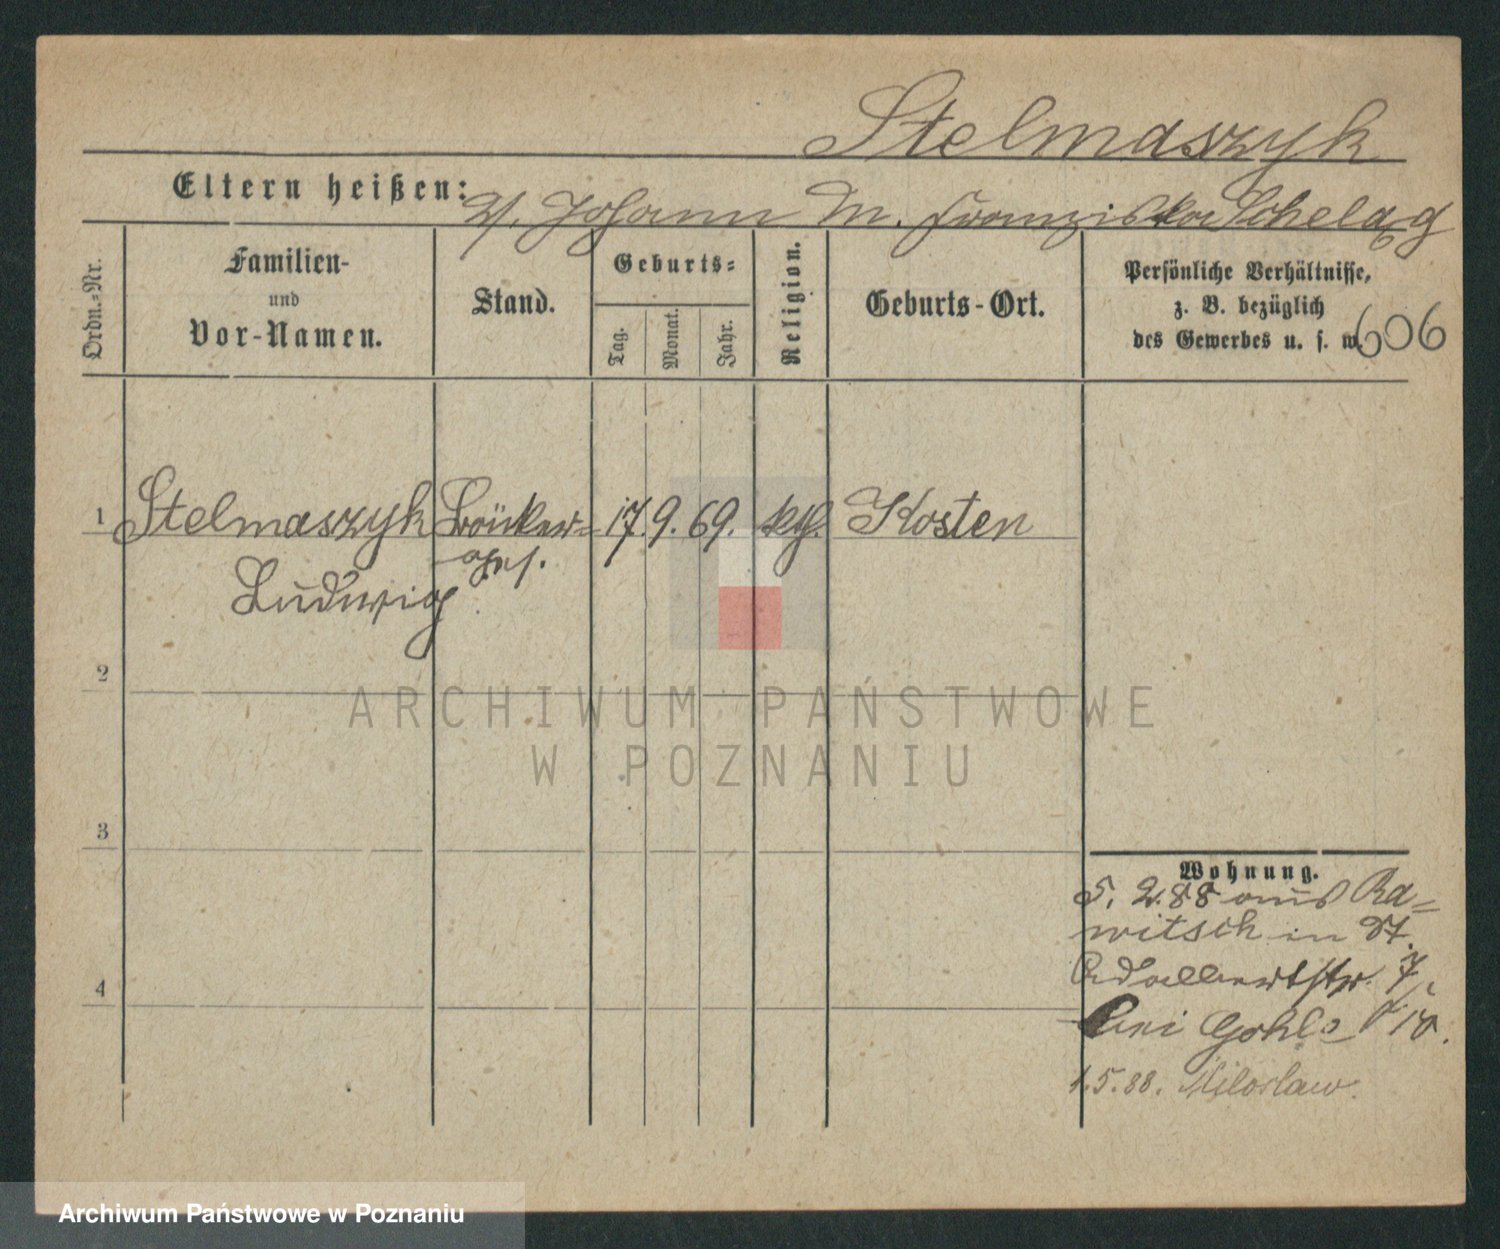 Stelmaszyk
Eltern heißen: V. Johann M. Franziska Schelag
Ordn.-Nr.
Familien-
und
Vor-Namen.
Stand.
Geburts-
Tag.
Monat.
Jahr.
Religion.
Geburts-Ort.
Persönliche Verhältnisse,
z. B. bezüglich
des Gewerbes u. s. w.
606
1 Stelmaszyk 17. 9. 69. kth. Kosten
Ludwig
2
3
4
Wohnung.
5. 2. 88 aus Ra=
witsch in St.
Adalbertstr. 7
bei Gohle
1.5.88. Miloslaw.
ARCHIWUM PAŃSTWOWE
W POZNANIU
Archiwum Państwowe w Poznaniu